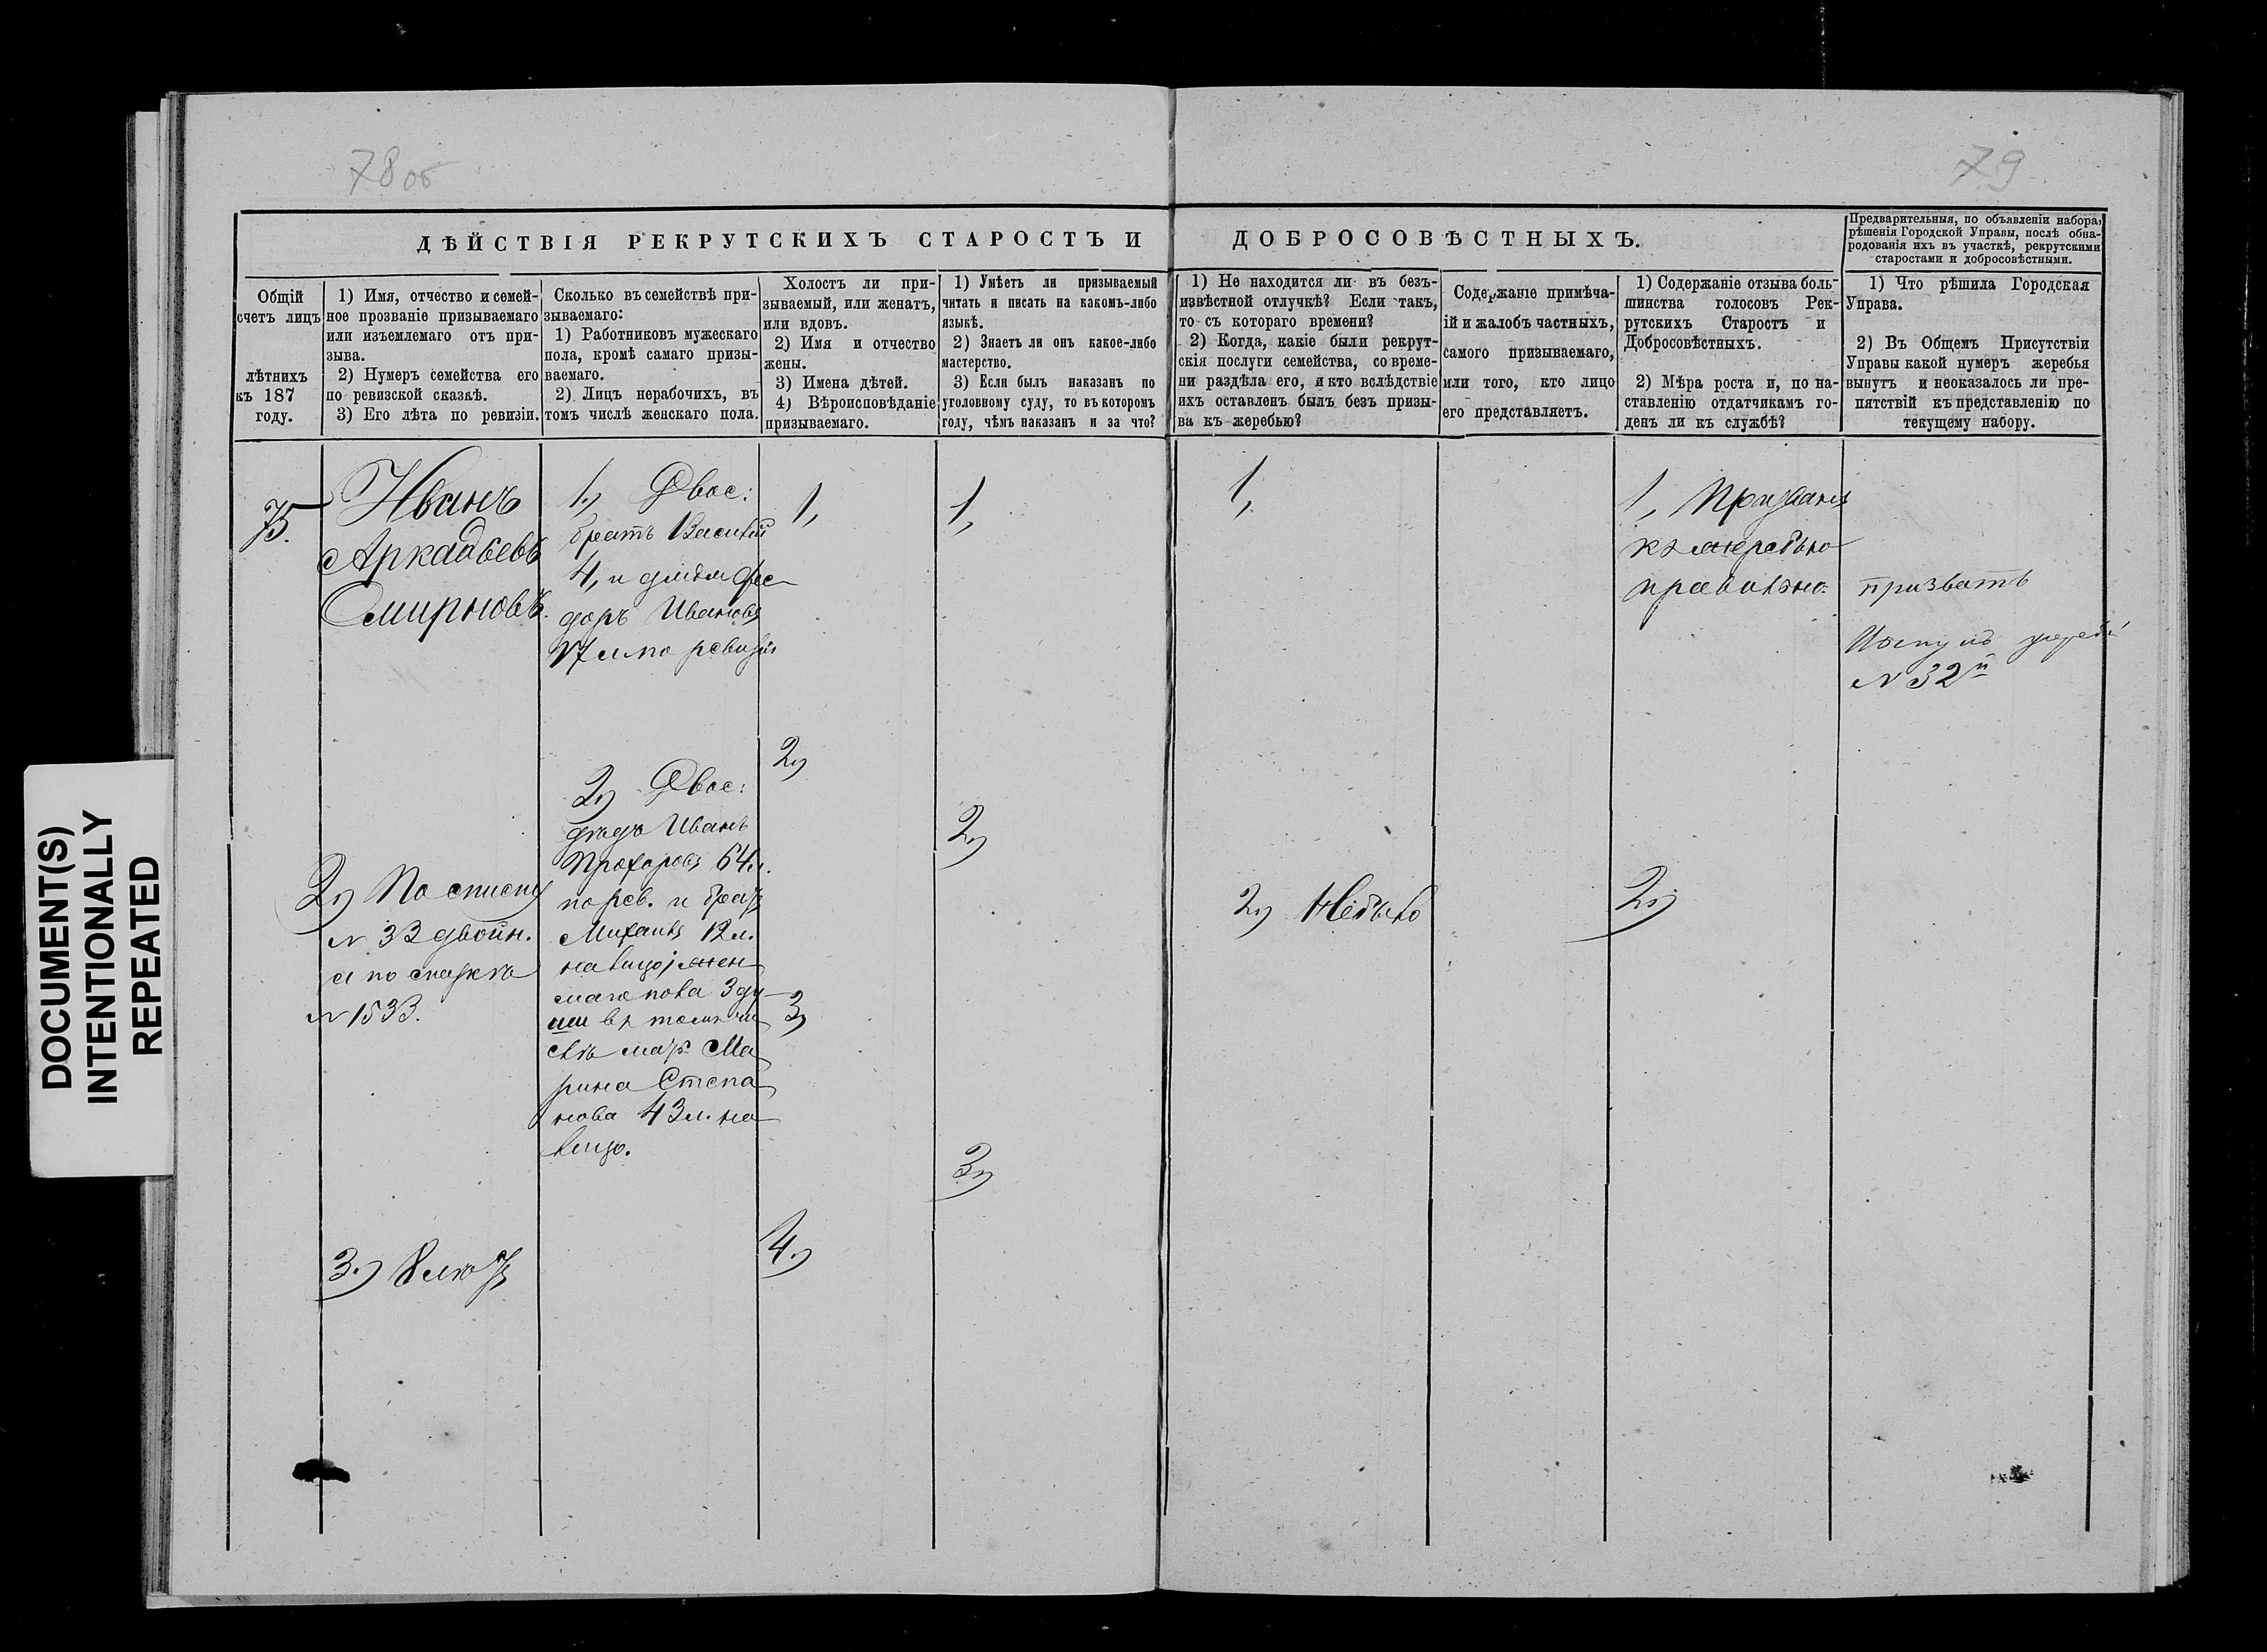 78 об
79
ДѢЙСТВІЯ РЕКРУТСКИХЪ СТАРОСТЪ И ДОБРОСОВѢСТНЫХЪ.
Предварительныя, по объявленіи набора,
рѣшенія Городской Управы, послѣ обна-
родованія ихъ въ участкѣ, рекрутскими
старостами и добросовѣстными.
Общій
счетъ лицъ
лѣтнихъ
къ 187
году.
1) Имя, отчество и семей-
ное прозваніе призываемаго
или изъемлемаго отъ при-
зыва.
2) Нумеръ семейства его
по ревизской сказкѣ.
3) Его лѣта по ревизіи.
Сколько въ семействѣ при-
зываемаго:
1) Работниковъ мужескаго
пола, кромѣ самаго призы-
ваемаго.
2) Лицъ нерабочихъ, въ
томъ числѣ женскаго пола.
Холостъ ли при-
зываемый, или женатъ,
или вдовъ.
2) Имя и отчество
жены.
3) Имена дѣтей.
4) Вѣроисповѣданіе
призываемаго.
1) Умѣетъ ли призываемый
читать и писать на какомъ-либо
языкѣ.
2) Знаетъ ли онъ какое-либо
мастерство.
3) Если былъ наказанъ по
уголовному суду, то въ которомъ
году, чѣмъ наказанъ и за что?
1) Не находится ли въ безъ-
извѣстной отлучкѣ? Если такъ,
то съ котораго времени?
2) Когда, какіе были рекрут-
скія послуги семейства, со време-
ни раздѣла его, и кто вслѣдствіе
ихъ оставленъ былъ безъ призы-
ва къ жеребью?
Содержаніе примѣча-
ій и жалобъ частныхъ,
самого призываемаго,
или того, кто лицо
его представляетъ.
1) Содержаніе отзыва боль-
шинства голосовъ Рек-
рутскихъ Старостъ и
Добросовѣстныхъ.
2) Мѣра роста и, по на-
ставленію отдатчикамъ го-
денъ ли къ службѣ?
1) Что рѣшила Городская
Управа.
2) Въ Общемъ Присутствіи
Управы какой нумеръ жеребья
вынутъ и неоказалось ли пре-
пятствій къ представленію по
текущему набору.
75.
Иванъ
Аркадьевъ
Смирновъ.
2) По списку
№ 33 двойн.
а по сказкѣ
№ 1533.
3.) 8 лѣтъ
1.) Двое:
братъ Василій
4, и дядя Фе-
доръ Ивановъ
17 л. по ревизіи
2.) Двое:
дѣдъ Иванъ
Прохоровъ 64 л.
по рев. и братъ
Михаилъ 12 л.
на лицо; жен-
скаго пола 3 ду-
ши въ томъ чи
слѣ мать Ма
рина Степа
нова 43 л. на
лицо.
1,
2,)
3,
4.)
1,
2,)
3,)
1,
2.) Небыло
1, Призванъ
къ жеребью
правильно.
2.)
призвать
Вынулъ жребій
№ 32й
DOCUMENT(S)
INTENTIONALLY
REPEATED